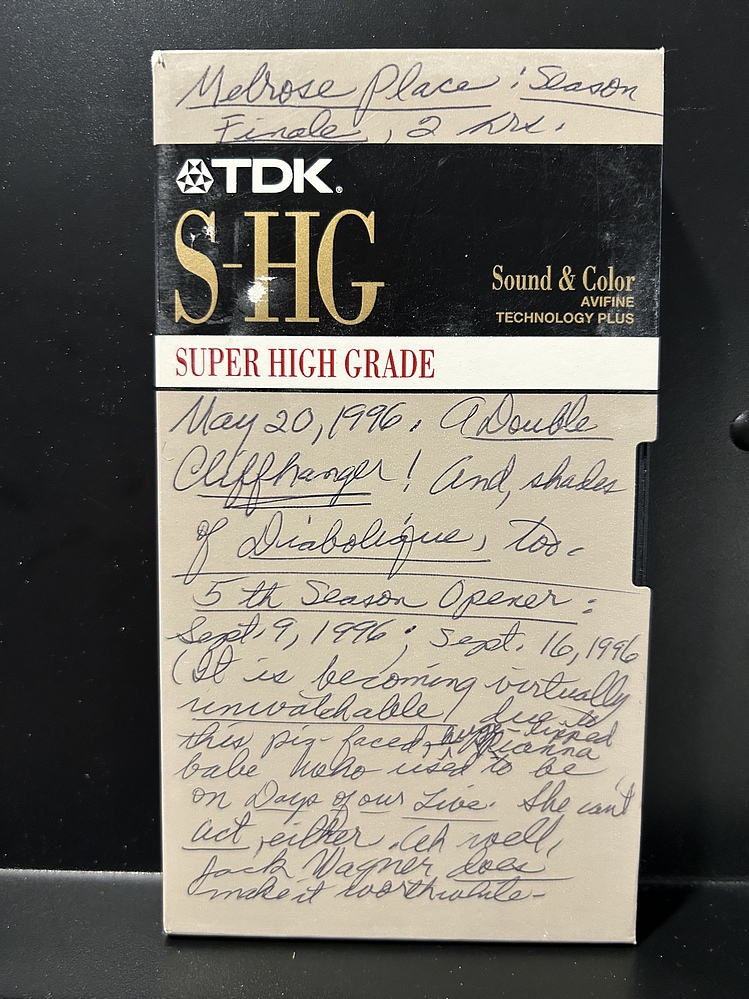 Melrose Place : Season
Finale, 2 hrs.
TDK®
S-HG
Sound & Color
AVIFINE
TECHNOLOGY PLUS
SUPER HIGH GRADE
May 20, 1996. A Double
Cliffhanger! And, shades
of Diabolique, too.
5th Season Opener:
Sept. 9, 1996; Sept. 16, 1996
(It is becoming virtually
unwatchable, due to
this pig-faced, huge-lipped Rianna
babe who used to be
on Days of our Live. She can't
act, either. Ah well,
Jack Wagner does
make it worthwhile-